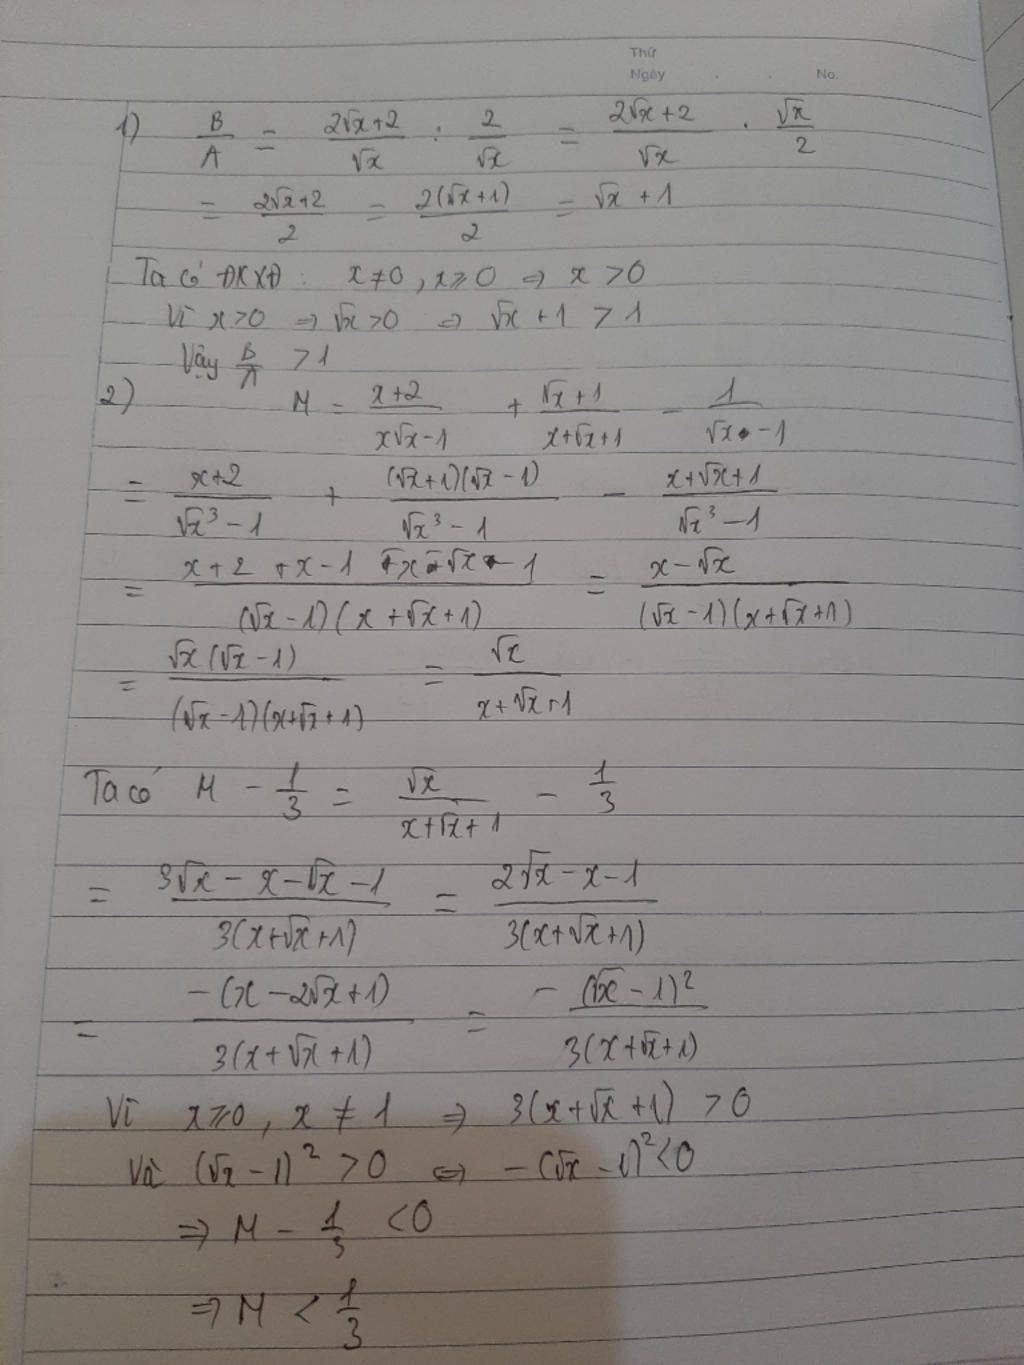 Thứ
Ngày . . No.
1) B/A = (2√x+2)/√x : 2/√x = (2√x+2)/√x . √x/2
= (2√x+2)/2 = 2(√x+1)/2 = √x + 1
Ta có ĐKXĐ : x≠0 , x⩾0 ⇒ x >0
Vì x>0 ⇒ √x >0 ⇒ √x + 1 > 1
Vậy B/A > 1
2) M = (x+2)/(x√x-1) + (√x+1)/(x+√x+1) - 1/(√x-1)
= (x+2)/(√x³-1) + (√x+1)(√x-1)/(√x³-1) - (x+√x+1)/(√x³-1)
= (x+2+x-1-x-√x-1)/((√x-1)(x+√x+1)) = (x-√x)/((√x-1)(x+√x+1))
= √x(√x-1)/((√x-1)(x+√x+1)) = √x/(x+√x+1)
Ta có M - 1/3 = √x/(x+√x+1) - 1/3
= (3√x-x-√x-1)/(3(x+√x+1)) = (2√x-x-1)/(3(x+√x+1))
= -(x-2√x+1)/(3(x+√x+1)) = -(√x-1)²/(3(x+√x+1))
Vì x⩾0 , x ≠ 1 ⇒ 3(x+√x+1) >0
Và (√x-1)² >0 ⇔ -(√x-1)²<0
⇒ M - 1/3 <0
⇒ M < 1/3